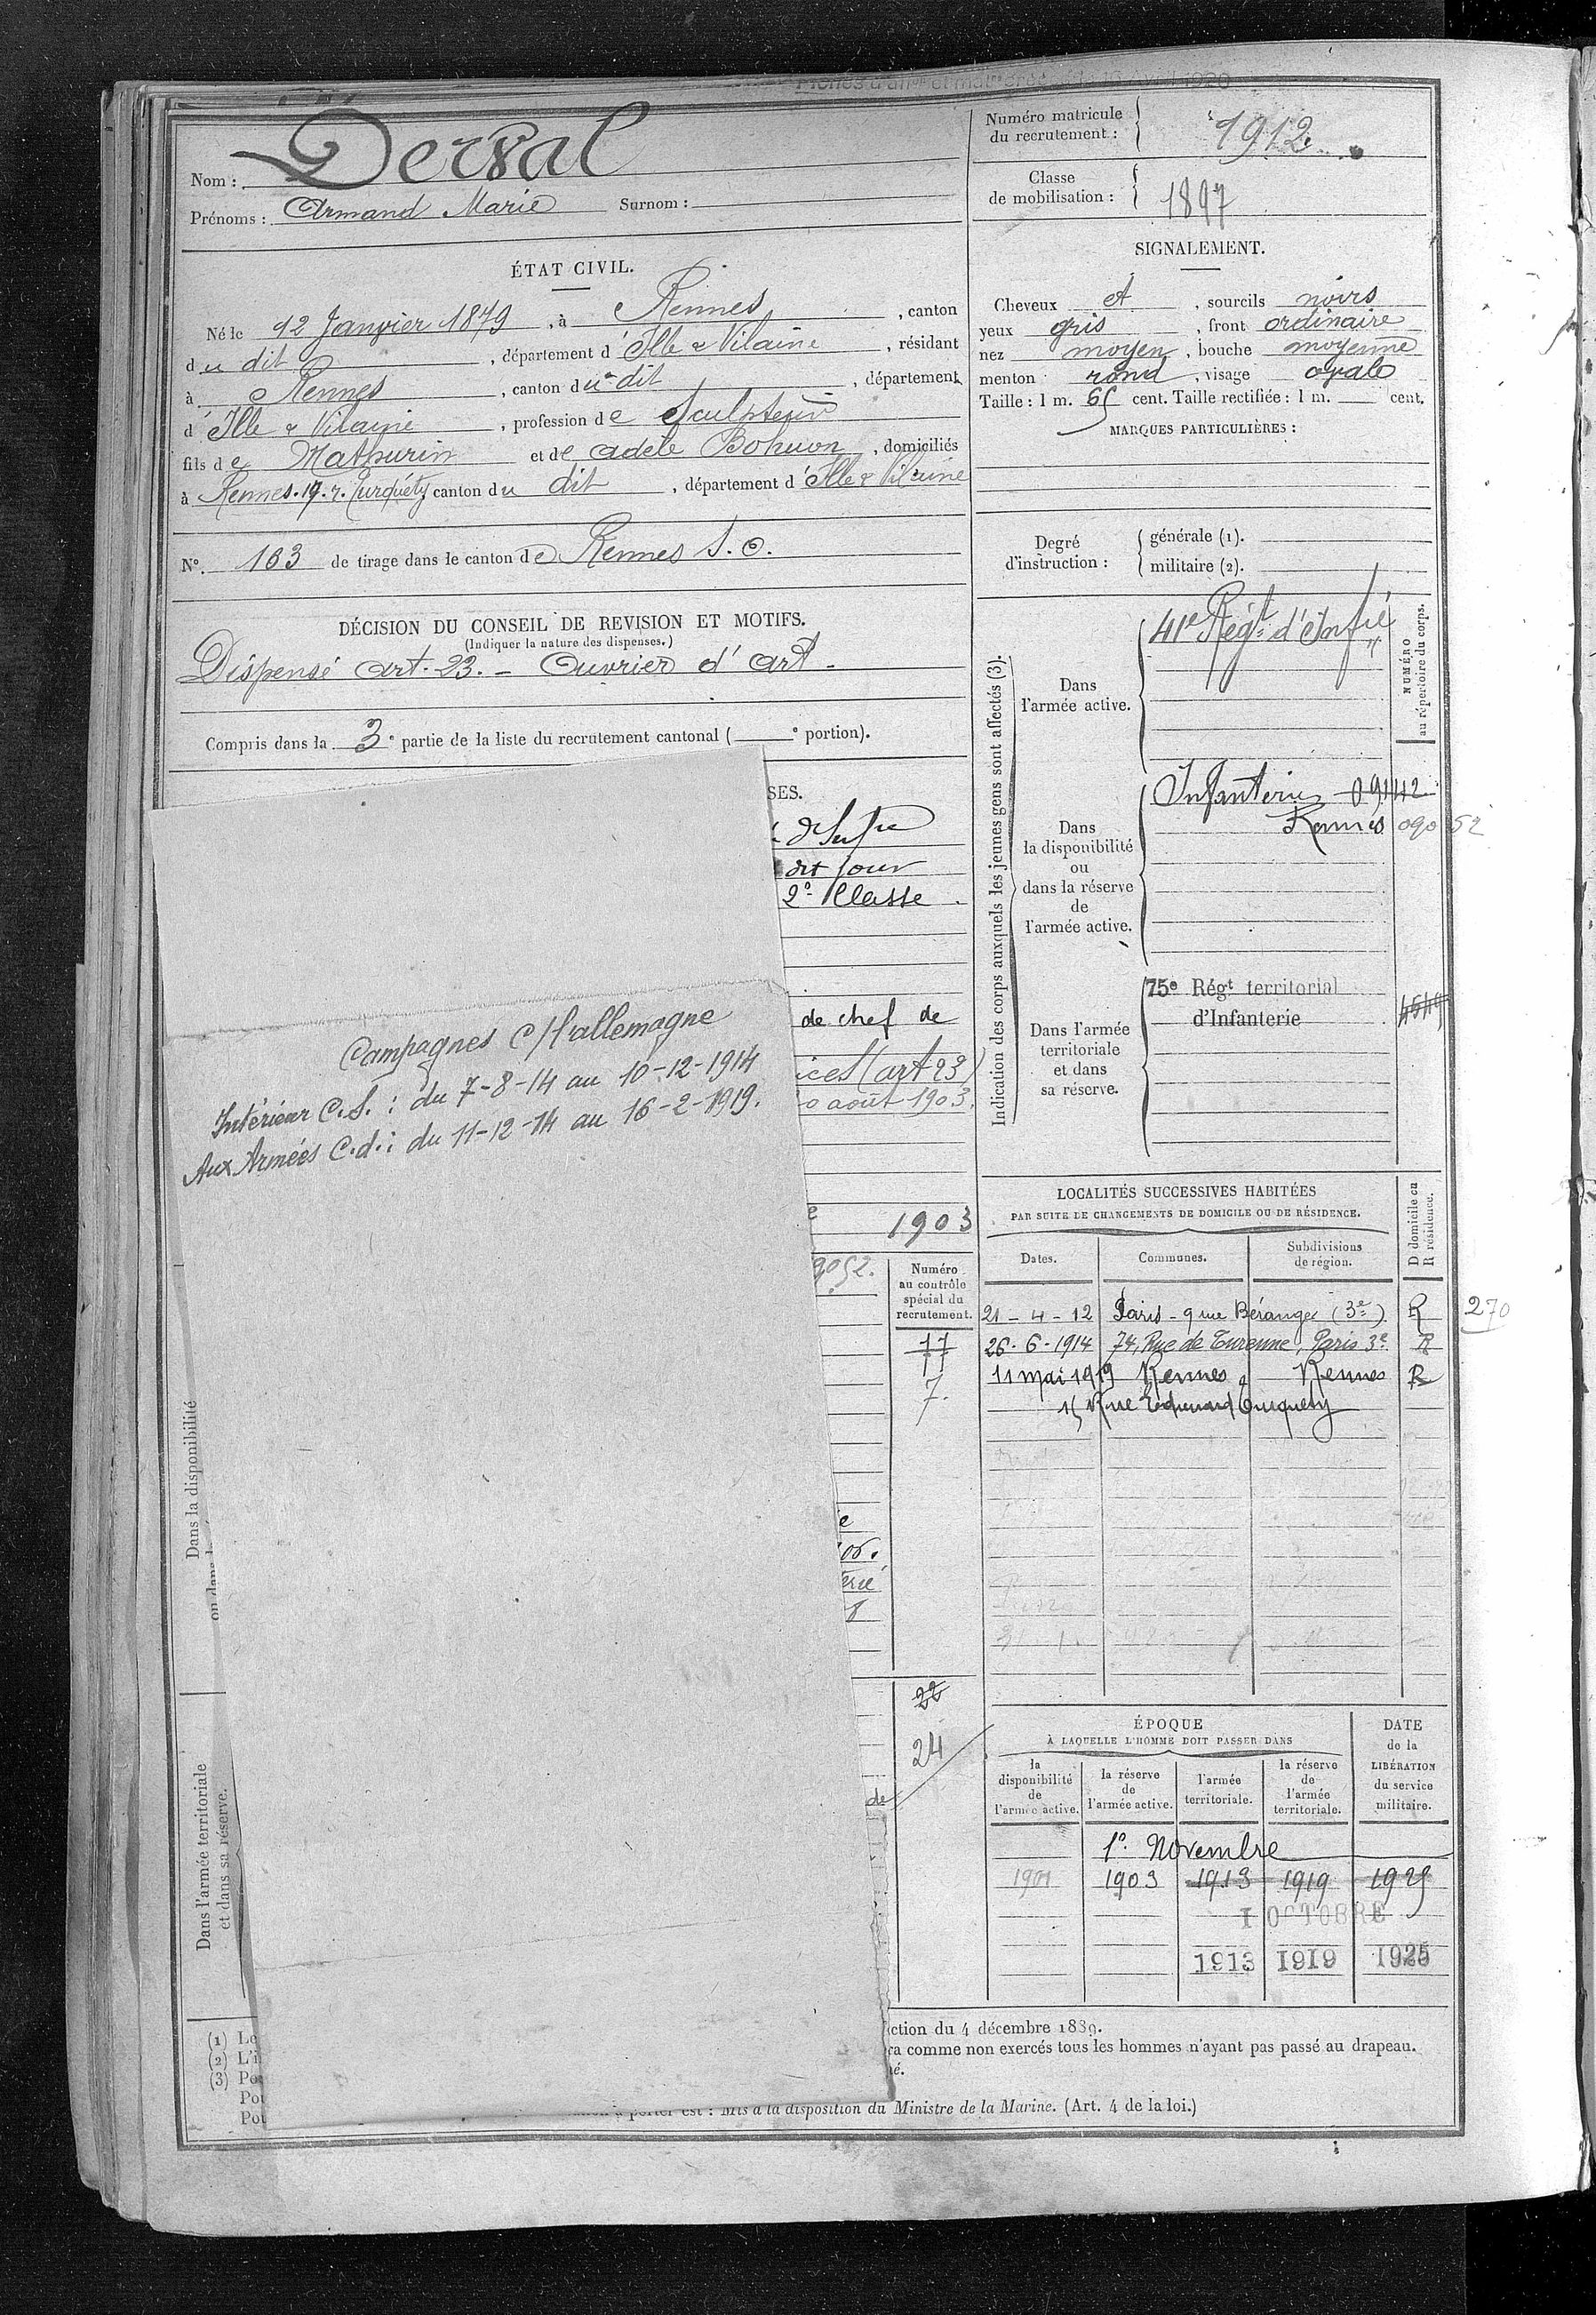 Derval
Nom :
Prénoms : Armand Marie Surnom :
ÉTAT CIVIL.
Né le 12 Janvier 1879, à Rennes, canton
du dit, département d'Ille & Vilaine, résidant
à Rennes, canton du dit, département
d'Ille & Vilaine, profession de Sculpteur
fils de Mathurin et de Adèle Bohuon, domiciliés
à Rennes. 19. r. Turquéty canton du dit, département d'Ille & Vilaine
N° 163 de tirage dans le canton de Rennes S. O.
DÉCISION DU CONSEIL DE REVISION ET MOTIFS.
(Indiquer la nature des dispenses.)
Dispensé art. 23. - Ouvrier d'art -
Compris dans la 3e partie de la liste du recrutement cantonal ( e portion).
SES.
d'Infie
dit jour
2e Classe
de chef de
ices (art 23)
août 1903.
1903
Campagnes C/ l'allemagne
Intérieur C.S. : du 7-8-14 au 10-12-1914
Aux Armées C.d. : du 11-12-14 au 16-2-1919.
9052.
Numéro
au contrôle
spécial du
recrutement.
77
7.
22
24
de
Dans la disponibilité
Dans l'armée territoriale
et dans sa réserve.
Numéro matricule
du recrutement : 1912
Classe
de mobilisation : 1897
SIGNALEMENT.
Cheveux et, sourcils noirs
yeux gris, front ordinaire
nez moyen, bouche moyenne
menton rond, visage ovale
Taille : 1 m. 65 cent. Taille rectifiée : 1 m. cent.
MARQUES PARTICULIÈRES :
Degré
d'instruction :
générale (1).
militaire (2).
Indication des corps auxquels les jeunes gens sont affectés (3).
NUMÉRO
au répertoire du corps.
Dans
l'armée active.
41e Régt d'Infie
Dans
la disponibilité
ou
dans la réserve
de
l'armée active.
Infanterie 09142
Rennes 09052
Dans l'armée
territoriale
et dans
sa réserve.
75e Régt territorial
d'Infanterie
LOCALITÉS SUCCESSIVES HABITÉES
PAR SUITE DE CHANGEMENTS DE DOMICILE OU DE RÉSIDENCE.
D domicile ou
R résidence.
Dates. Communes. Subdivisions
de région.
21-4-12 Paris - 9 rue Béranger (3e) R 270
26-6-1914 74, Rue de Turenne, Paris 3e R
11 mai 1919 Rennes Rennes R
15 Rue Edouard Turquety
ÉPOQUE
À LAQUELLE L'HOMME DOIT PASSER DANS
DATE
de la
LIBÉRATION
du service
militaire.
la
disponibilité
de
l'armée active.
la réserve
de
l'armée active.
l'armée
territoriale.
la réserve
de
l'armée
territoriale.
1er Novembre
1901 1903 1913 1919 1925
1 OCTOBRE
1913 1919 1925
(1) Le
(2) L'i
(3) Po
Pou
Pou
ction du 4 décembre 1889.
ra comme non exercés tous les hommes n'ayant pas passé au drapeau.
né.
à porter est : Mis à la disposition du Ministre de la Marine. (Art. 4 de la loi.)